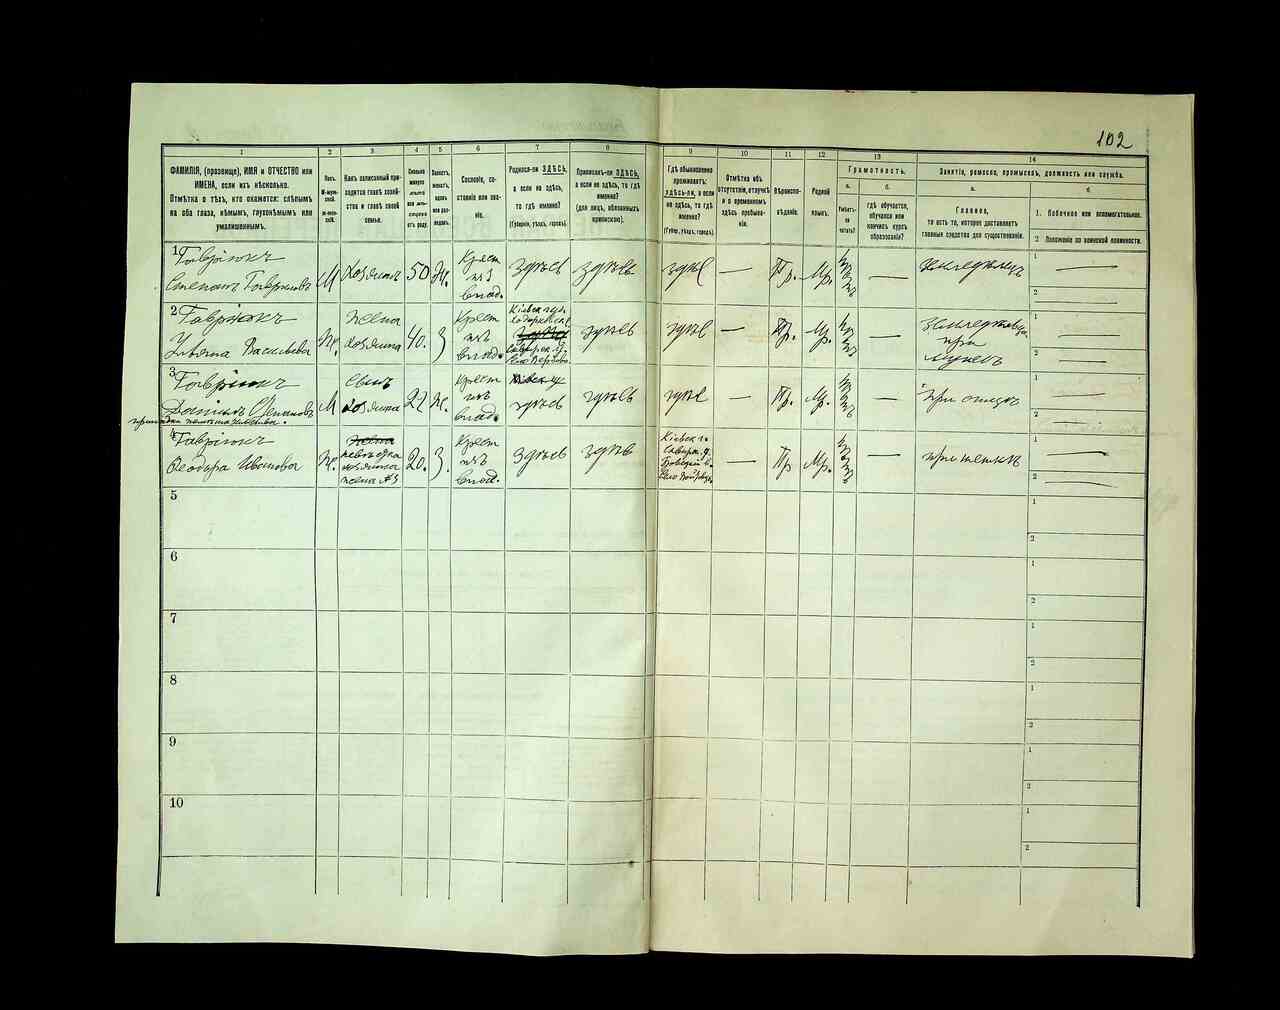 102
1
2
3
4
5
6
7
8
9
10
11
12
13
14
ФАМИЛІЯ, (прозвище), ИМЯ и ОТЧЕСТВО или
ИМЕНА, если ихъ нѣсколько.
Отмѣтка о тѣхъ, кто окажется: слѣпымъ
на оба глаза, нѣмымъ, глухонѣмымъ или
умалишеннымъ.
Полъ.
М-муж-
ской.
Ж-жен-
скій.
Какъ записанный при-
ходится главѣ хозяй-
ства и главѣ своей
семьи.
Сколько
минуло
лѣтъ
или мѣ-
сяцевъ
отъ роду.
Холостъ,
женатъ,
вдовъ
или раз-
веденъ.
Сословіе, со-
стояніе или зва-
ніе.
Родился-ли ЗДѢСЬ,
а если не здѣсь,
то гдѣ именно?
(Губернія, уѣздъ, городъ).
Приписанъ-ли ЗДѢСЬ,
а если не здѣсь, то гдѣ
именно?
(для лицъ, обязанныхъ
припискою).
Гдѣ обыкновенно
проживаетъ:
здѣсь-ли, а если
не здѣсь, то гдѣ
именно?
(Губер., уѣздъ, городъ).
Отмѣтка объ
отсутствіи, отлучкѣ
и о временномъ
здѣсь пребыва-
ніи.
Вѣроиспо-
вѣданіе.
Родной
языкъ.
Грамотность.
а.
б.
Умѣетъ-
ли
читать?
гдѣ обучается,
обучался или
кончилъ курсъ
образованія?
Занятіе, ремесло, промыселъ, должность или служба.
а.
б.
Главное,
то есть то, которое доставляетъ
главныя средства для существованія.
1. Побочное или вспомогательное.
2. Положеніе по воинской повинности.
1
Гаврілюкъ
Степанъ Гавриловъ
М
Хозяинъ
50
Ж.
Крест
изъ
влад.
здѣсь
здѣсь
здѣсь
—
Пр.
Мр.
—
земледѣлецъ
1 —
2 —
2
Гаврілюкъ
Ульяна Васильева
Ж.
жена
хозяина
40.
З
Крест
изъ
влад.
Кіевск губ.
здѣсь
здѣсь
—
Пр.
Мр.
—
при
мужѣ
1 —
2 —
3
Гаврілюкъ
Степановъ
М
сынъ
хозяина
22
Ж.
Крест
изъ
влад.
здѣсь
здѣсь
здѣсь
—
Пр.
Мр.
—
при отцѣ
1 —
2 —
4
Гаврілюкъ
Ѳеодора Иванова
Ж.
невѣстка
хозяина
жена №3
20.
З.
Крест
изъ
влад.
здѣсь
здѣсь
Кіевск г.
Сквирск. у.
—
Пр
Мр.
—
1 —
2 —
5
1
2
6
1
2
7
1
2
8
1
2
9
1
2
10
1
2